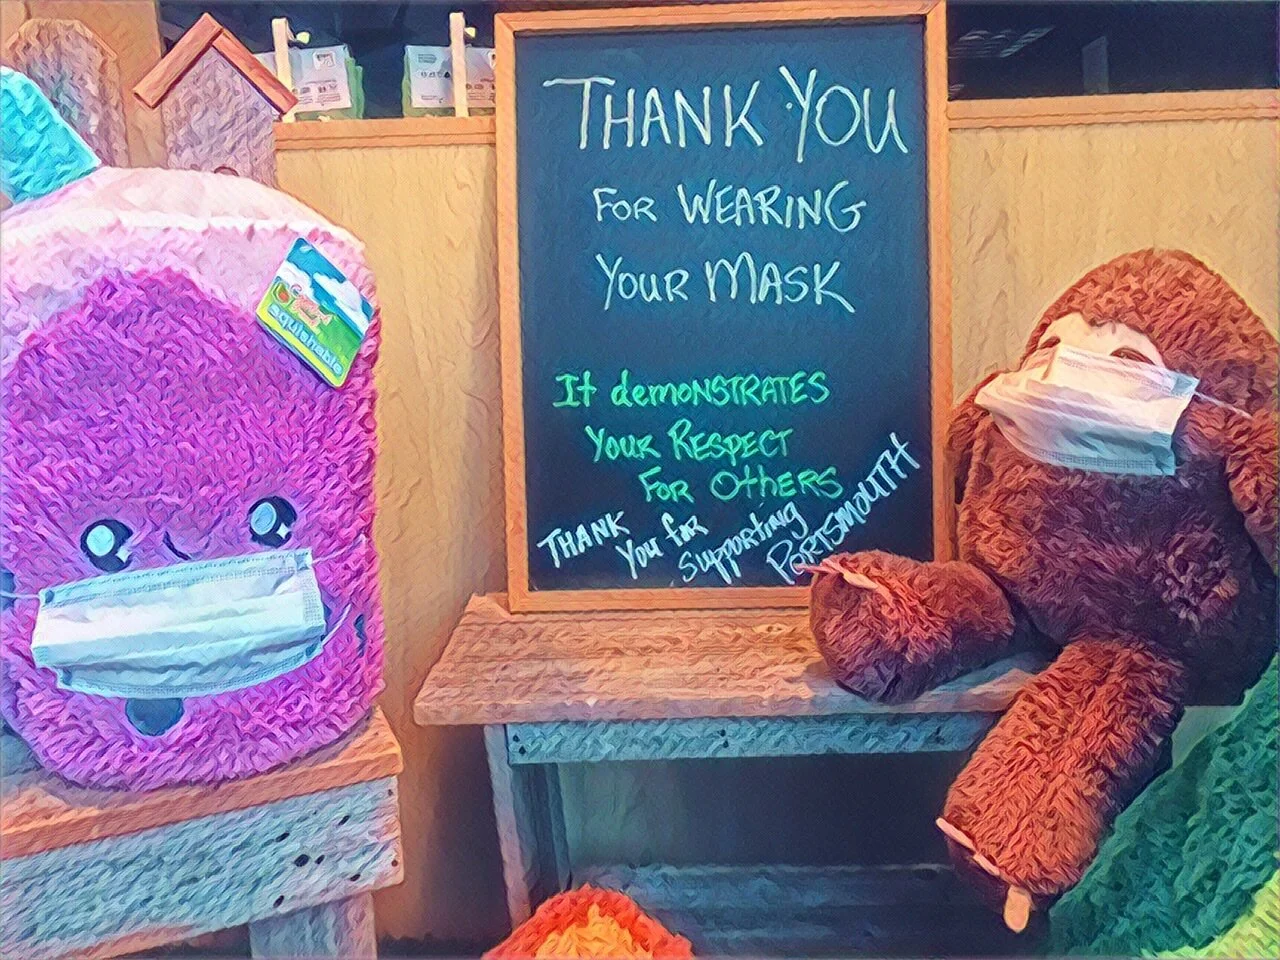 THANK YOU
FOR WEARING
YOUR MASK
It demonstrates
Your Respect
For Others
THANK
You for
supporting
PORTSMOUTH
squishable